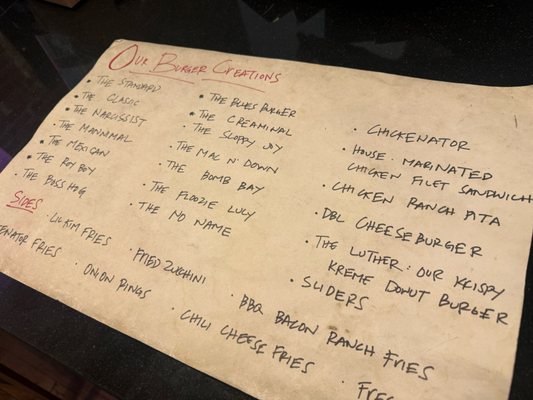 Our Burger Creations
• The Standard
• The Classic
• The Narcissist
• The Manimal
• The Mexican
• The Roy Boy
• The Boss Hog
• The Blues Burger
• The Creaminal
• The Sloppy Joy
• The Mac N' Down
• The Bomb Bay
• The Floozie Lucy
• The No Name
• Chickenator
• House Marinated
Chicken Filet Sandwich
• Chicken Ranch Pita
• Dbl Cheeseburger
• The Luther: Our Krispy
Kreme Donut Burger
• Sliders
Sides
• Lil Kim Fries
enator Fries
• Fried Zucchini
• Onion Rings
• BBQ Bacon Ranch Fries
• Chili Cheese Fries